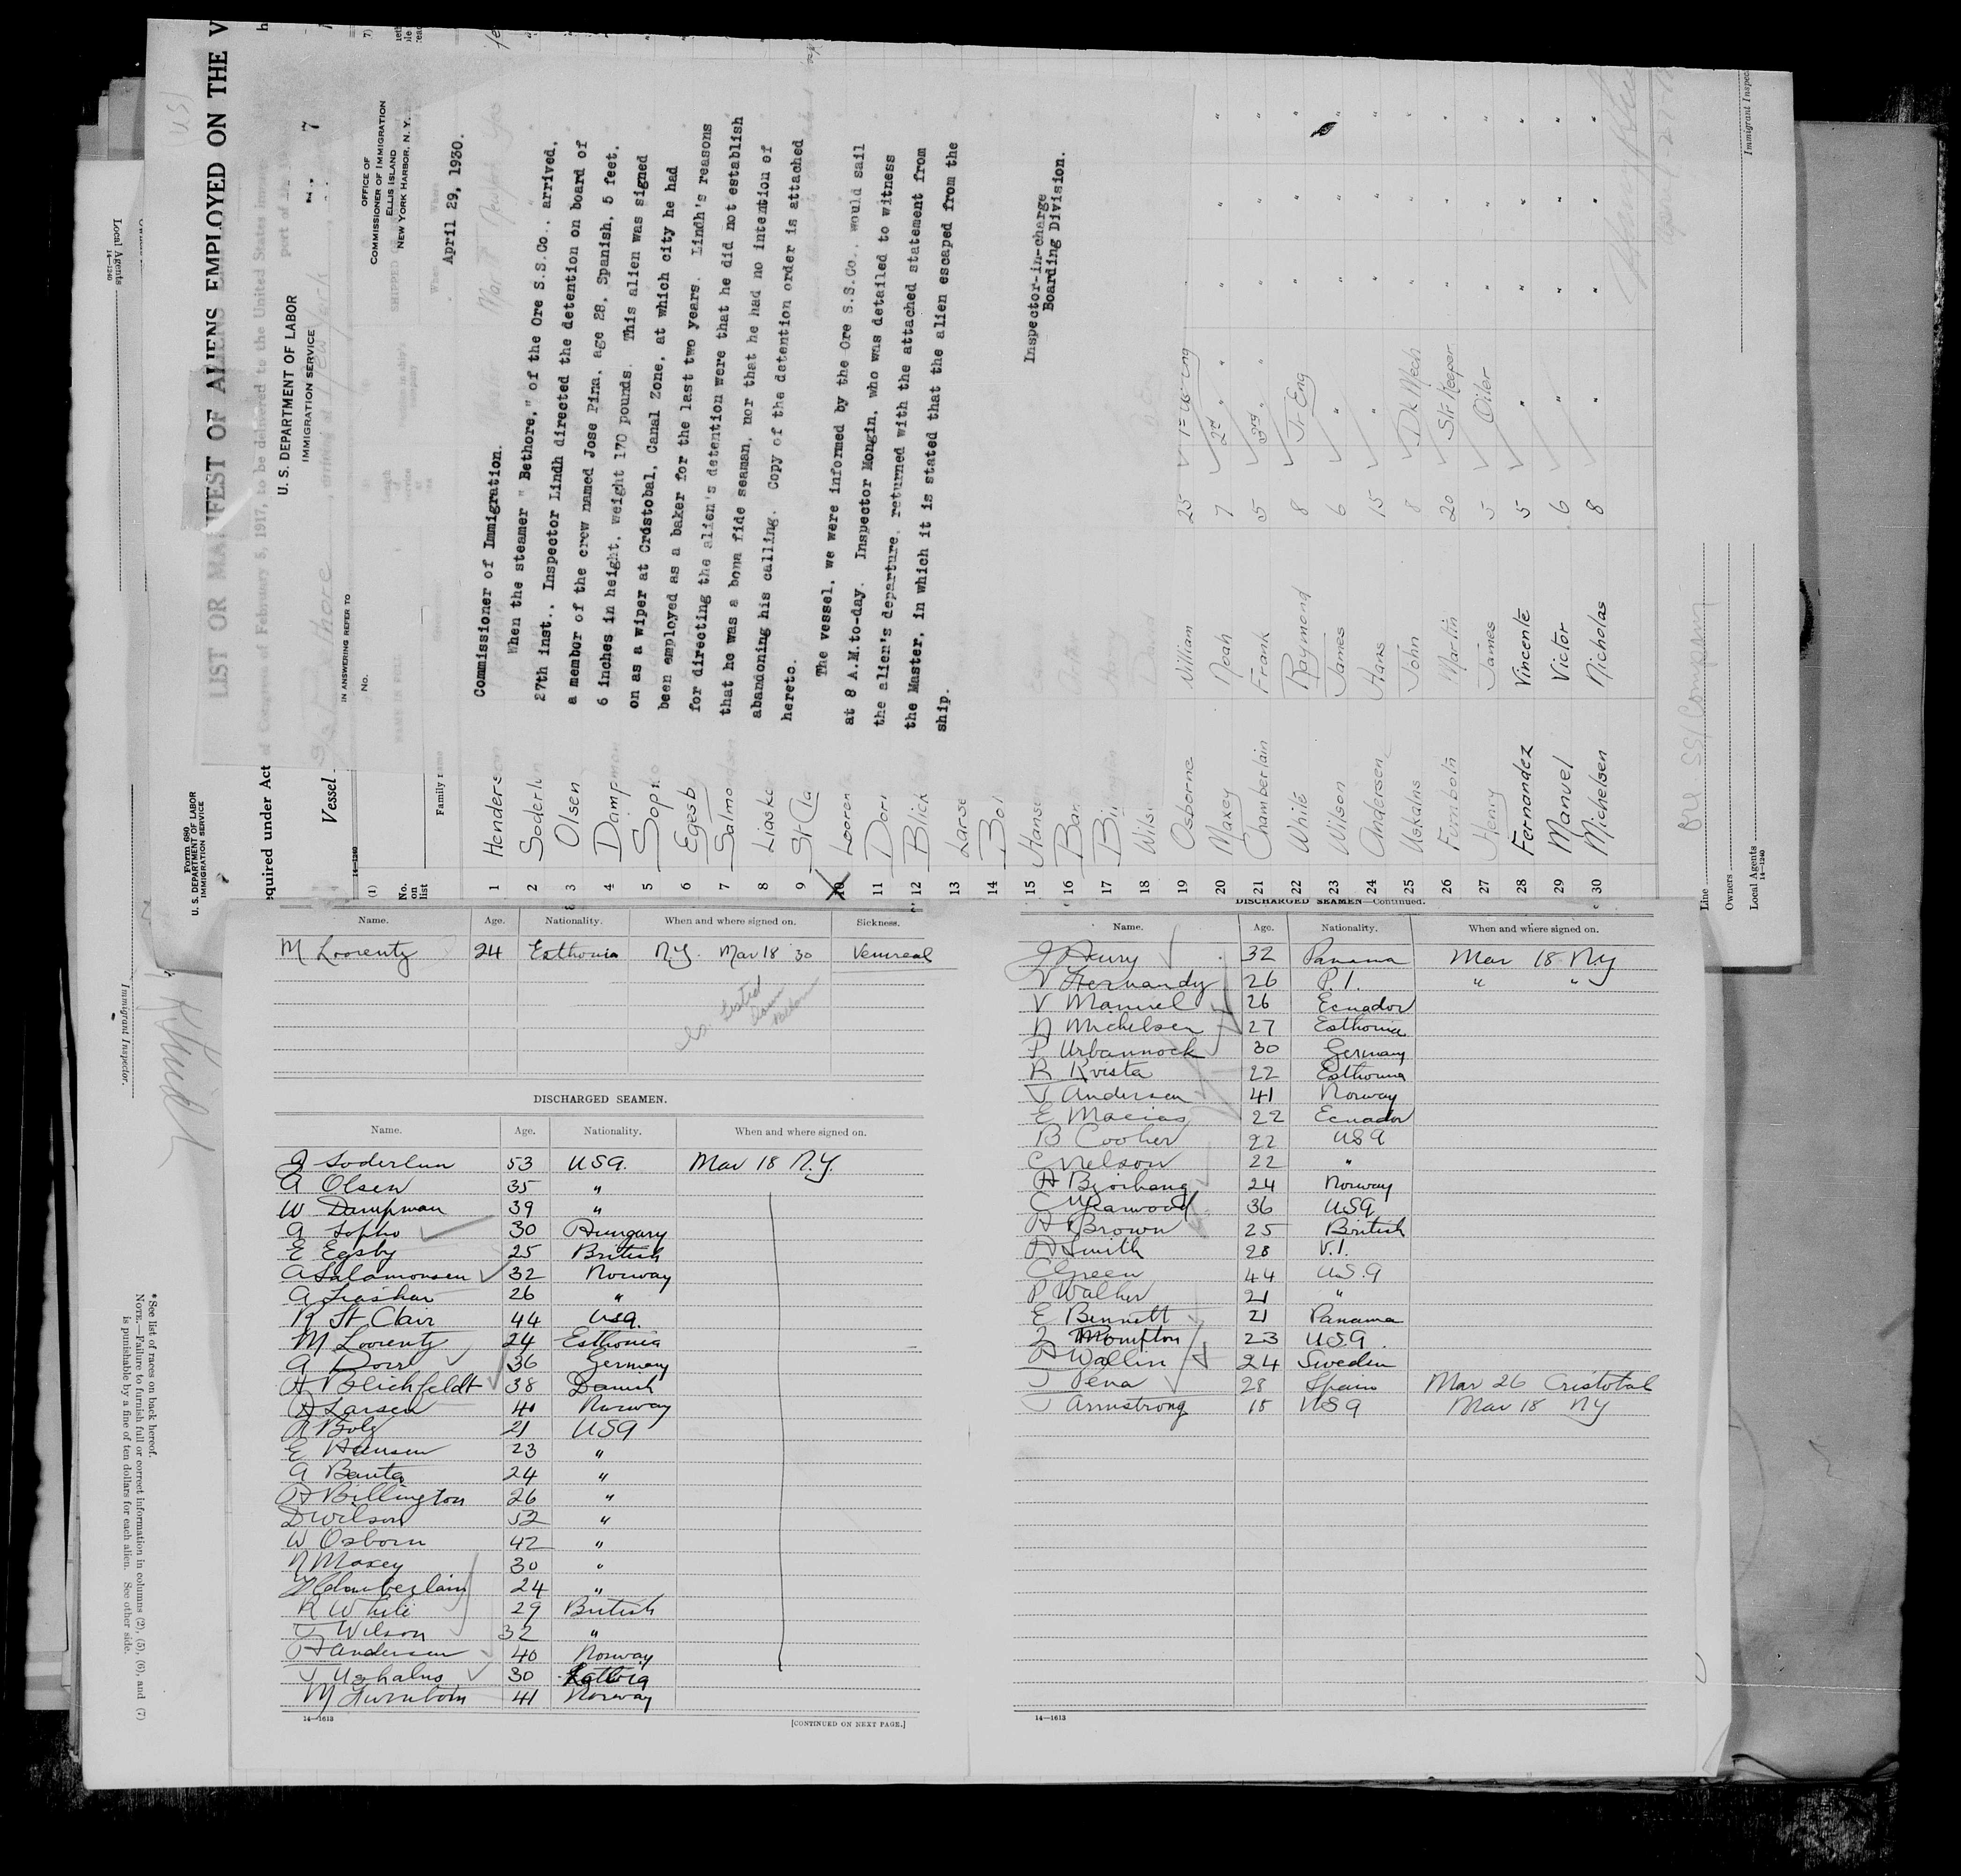 LIST OR MANIFEST OF ALIENS EMPLOYED ON THE V
equired under Act of Congress of February 5, 1917, to be delivered to the United States
port of
Vessel
U. S. DEPARTMENT OF LABOR
IMMIGRATION SERVICE
OFFICE OF
COMMISSIONER OF IMMIGRATION
ELLIS ISLAND
NEW YORK HARBOR, N. Y.
IN ANSWERING REFER TO
No.
April 29, 1930.
Commissioner of Immigration.
When the steamer " Bethore," of the Ore S.S.Co., arrived,
27th inst., Inspector Lindh directed the detention on board of
a member of the crew named Jose Pina, age 28, Spanish, 5 feet,
6 inches in height, weight 170 pounds. This alien was signed
on as a wiper at Crdstobal, Canal Zone, at which city he had
been employed as a baker for the last two years. Lindh's reasons
for directing the alien's detention were that he did not establish
that he was a bona fide seaman, nor that he had no intention of
abandoning his calling. Copy of the detention order is attached
hereto.
The vessel, we were informed by the Ore S.S.Co., would sail
at 8 A.M.to-day. Inspector Mongin, who was detailed to witness
the alien's departure, returned with the attached statement from
the Master, in which it is stated that the alien escaped from the
ship.
Inspector-in-charge
Boarding Division.
(1)
No. on list
Family name
1 Henderson
2 Soderlu
3 Olsen
4 Dampman
5 Sopko
6 Egesby
7 Salmo
8 Liaske
9 St Cla
10 Looren
11 Dorr
12 Blick
13 Larse
14 Bol
15 Hanse
16 Ban
17 Bil
18 Wils
19 Osborne William 25
20 Maxey Noah 7 2nd " " " "
21 Chamberlain Frank 5 3rd " " " "
22 White Raymond 8 Jr Eng " " "
23 Wilson James 6 " " " "
24 Andersen Hans 15 " " " "
25 Uskalns John 8 Dk Mech " " "
26 Furnboln Martin 20 Str Keeper " " "
27 Henry James 5 Oiler " " "
28 Fernandez Vincente 5 " " " "
29 Manuel Victor 6 " " " "
30 Michelsen Nicholas 8 " " " "
Line Ore SS/Company
Owners
Local Agents
14—1240
Immigrant Inspec
Form 680
U. S. DEPARTMENT OF LABOR
IMMIGRATION SERVICE
Local Agents
14—1240
Immigrant Inspector.
* See list of races on back hereof.
NOTE.—Failure to furnish full or correct information in columns (2), (5), (6), and (7)
is punishable by a fine of ten dollars for each alien. See other side.
Name. Age. Nationality. When and where signed on. Sickness.
M Loorentz 24 Esthonia N.Y. Mar 18 30 Venereal
Listed
DISCHARGED SEAMEN.
Name. Age. Nationality. When and where signed on.
J Soderlun 53 USA. Mar 18 N.Y.
A Olsen 35 "
W Dampman 39 "
A Sopko 30 Hungary
E Egsby 25 British
A Salamonsen 32 Norway
A Liaskar 26 "
R St Clair 44 USA.
M Loorentz 24 Esthonia
A Dorr 36 Germany
H Blichfeldt 38 Danish
H Larsen 41 Norway
R Bolg 21 USA
E Hansen 23 "
A Banta 24 "
H Billington 26 "
D Wilson 52 "
W Osborn 42 "
N Maxey 30 "
F Chamberlain 24 "
R White 29 British
J Wilson 32 "
H Andersen 40 Norway
J Uskalns 30 Latvia
M Furnboln 41 Norway
14—1613
[CONTINUED ON NEXT PAGE.]
DISCHARGED SEAMEN—Continued.
Name. Age. Nationality. When and where signed on.
J Henry 32 Panama Mar 18 NY
V Fernandy 26 P.I. " "
V Manuel 26 Ecuador
N Michelsen 27 Esthonia
P Urbannock 30 Germany
R Kvista 22 Esthonia
J Andersen 41 Norway
E Macias 22 Ecuador
B Cooher 22 USA
C Nelson 22 "
H Bjorhang 24 Norway
C Yearwood 36 USA
H Brown 25 British
H Smith 28 V.I.
C Green 44 U.S.A
P Walker 21 "
E Bennett 21 Panama
Z Mompton 23 U.S.A.
H Wallin 24 Sweden
J Pena 28 Spain Mar 26 Cristobal
J Armstrong 18 USA Mar 18 NY
14—1613